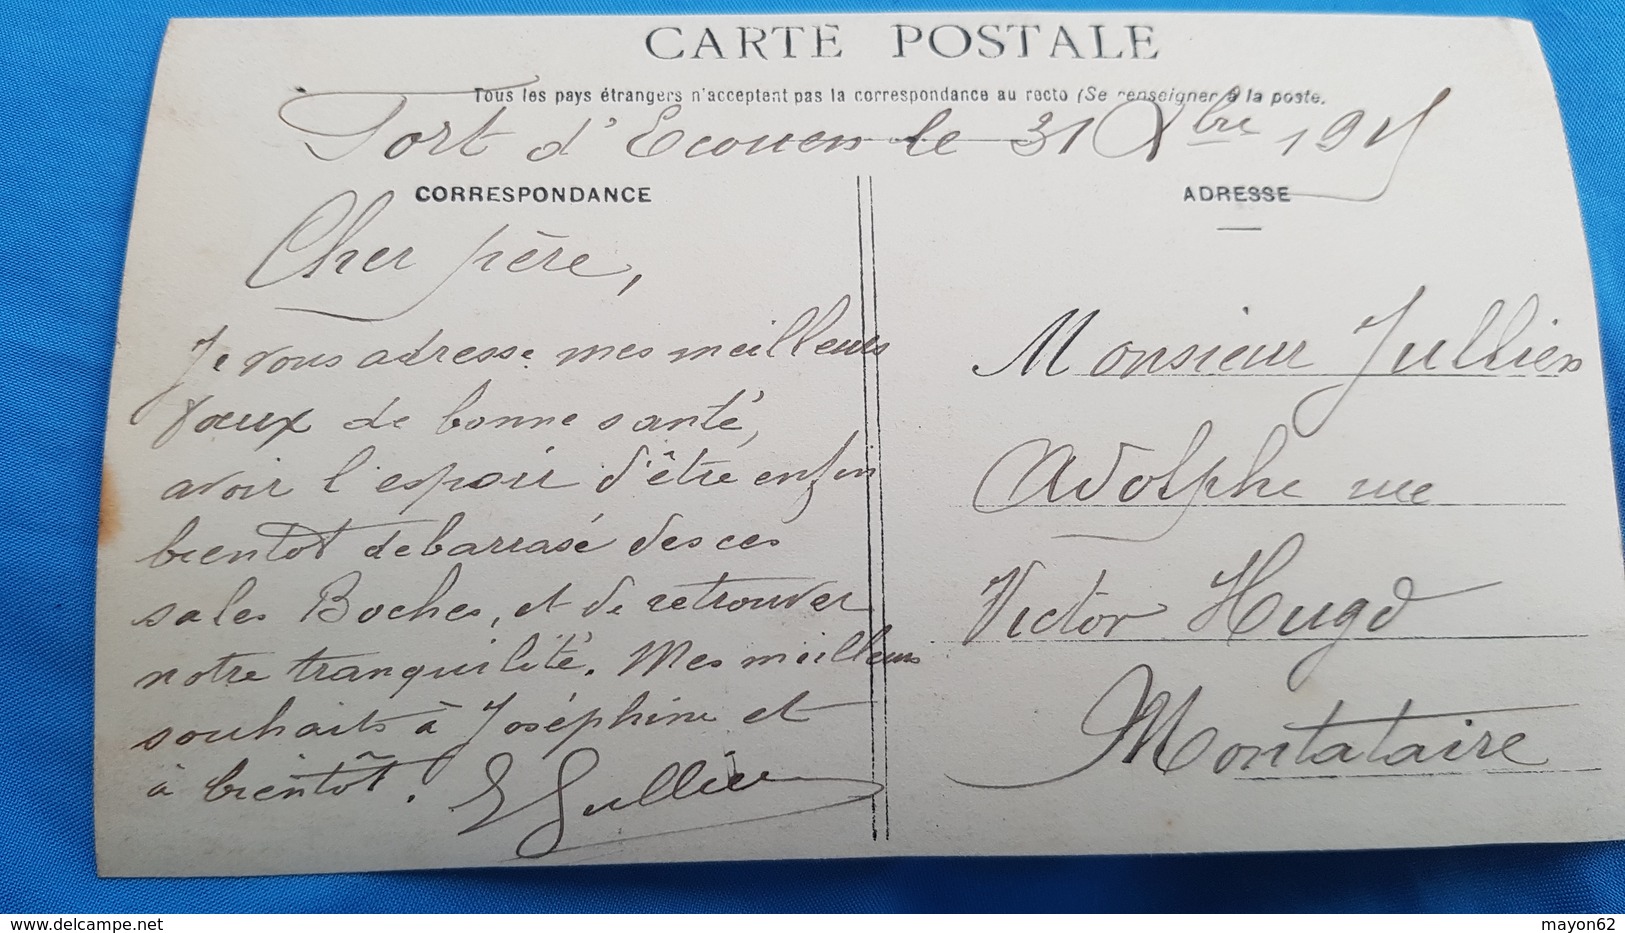 CARTE POSTALE
Tous les pays étrangers n'acceptent pas la correspondance au recto (Se renseigner à la poste.
Fort d'Ecouen le 31 Xbre 1915
CORRESPONDANCE
Cher père,
Je vous adresse mes meilleurs
vœux de bonne santé,
avoir l'espoir d'être enfin
bientot debarrasé des ces
sales Boches, et de retrouver
notre tranquilité. Mes meilleurs
souhaits à Joséphine et
à bientôt. E Jullien
ADRESSE
Monsieur Jullien
Adolphe rue
Victor Hugo
Montataire
delcampe.net
mayon62